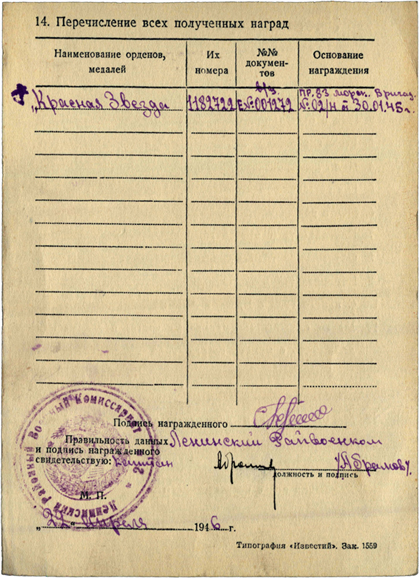 14. Перечисление всех полученных наград
Наименование орденов, медалей
Их номера
№№ документов
Основание награждения
в/у
„Красная Звезда
1182722
Е№001272
ПР. 83 морск. Бригад.
№02/н от 30.01.45г.
Подпись награжденного
Правильность данных
и подпись награжденного
свидетельствую: Капитан
Ленинский Райвоенком
/Абрамов/
должность и подпись
М. П.
„22" апреля 1946 г.
Районный Военный Комиссариат
Ленинский
Типография «Известий». Зак. 1559